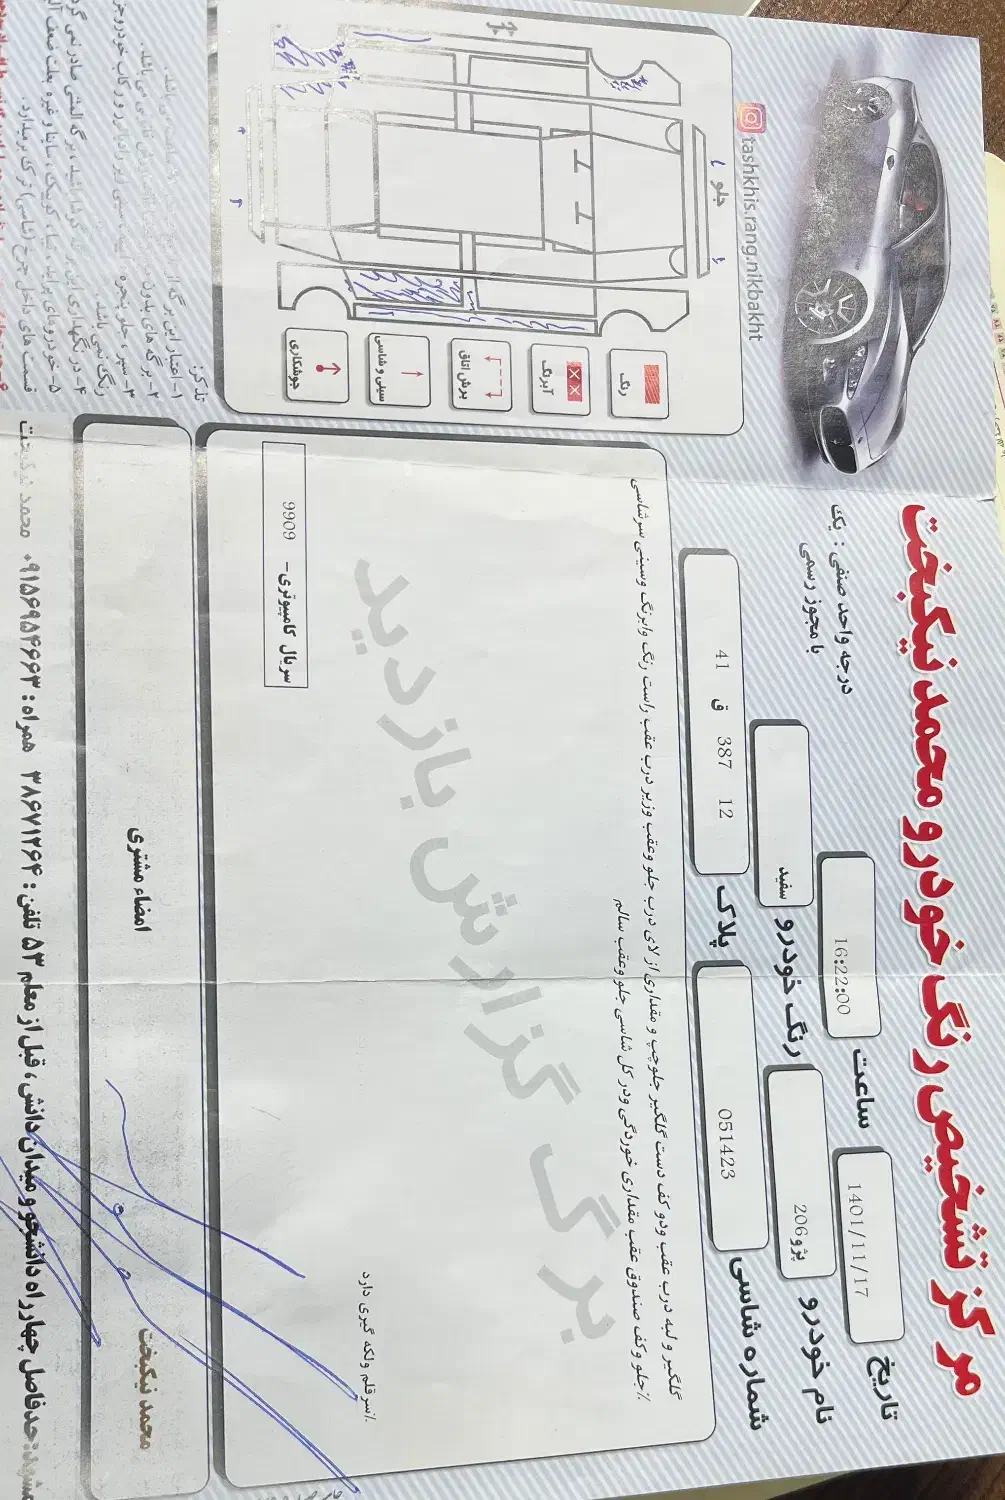 مرکز تشخیص رنگ خودرو محمد نیکبخت
درجه واحد صنفی : یک
با مجوز رسمی
تاریخ 1401/11/17
ساعت 16:22:00
نام خودرو پژو206
رنگ خودرو سفید
شماره شاسی 051423
پلاک 12 387 ق 41
گلگیر و لبه درب عقب ودو کف دست گلگیر جلوچپ و مقداری از لای درب جلو وعقب وزیر درب عقب راست رنگ وابرنگ وسینی سرشاسی
جلو وکف صندوق عقب مقداری خوردگی ودر کل شاسی جلو وعقب سالم
برگ گزارش بازدید
/سرقلم ولکه گیری دارد
سریال کامپیوتری- 9909
محمد نیکبخت
امضاء مشتری
مشهد:حدفاصل چهارراه دانشجو و میدان دانش ، قبل از معلم ۵۳ تلفن : ۳۸۶۷۱۲۶۴ همراه : ۰۹۱۵۶۹۵۴۶۶۳ محمد نیکبخت
tashkhis.rang.nikbakht
جلو
رنگ
آبرنگ
برش اتاق
سینی و شاسی
جوشکاری
تذکر:
۱- اعتبار این برگه از
۲- برگه های بدون
۳- سپر ، جلو پنجره
رنگ نمی باشد.